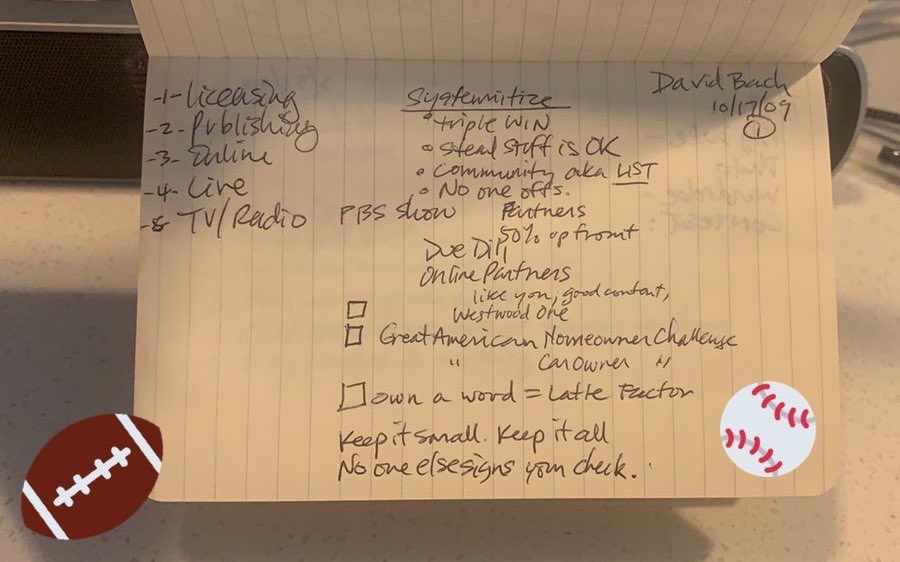 David Bach
10/17/09
1
-1- Liceasing
-2- Publishing
-3- Online
-4- Live
-5- TV/Radio
Systemitize
• triple WIN
• Steal stuff is OK
• Community aka LIST
• No one offs.
PBS show Partners
50% upfront
Due Dill
Online Partners
like you; good content,
Westwood One
Great American Homeowner Challenge
" Car Owner "
own a word = Latte Factor
Keep it small. Keep it all
No one else signs your check.